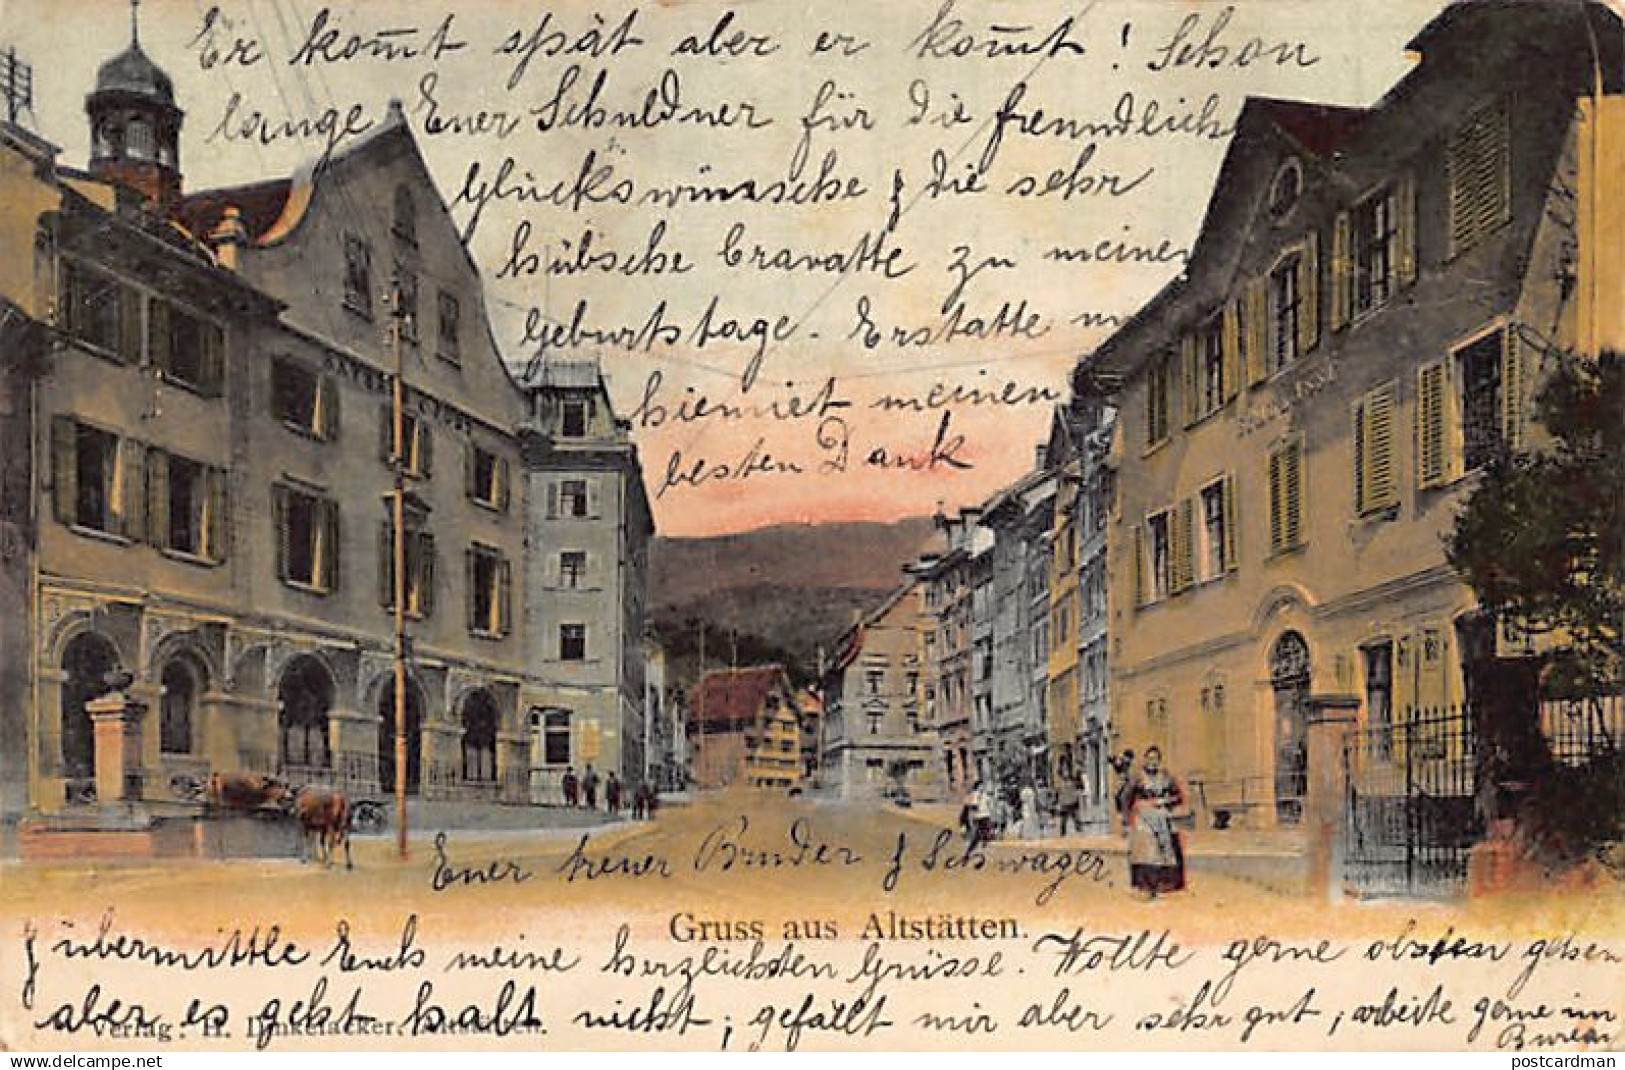 Er kom̄t spät aber er kom̄t! Schon
lange Euer Schuldner für die freundlich
Glückswünsche & die sehr
hübsche Cravatte zu meinen
Geburtstage. Erstatte
hiemiet meinen
besten Dank
Euer treuer Bruder & Schwager.
Gruss aus Altstätten.
& übermittle Euch meine herzlichsten Grüsse. Wollte gerne gehen
aber es geht halt nicht; gefällt mir aber sehr gut, arbeite gerne im
Bureau
Verlag: H. Dinkelacker, Altstätten.
postcardman